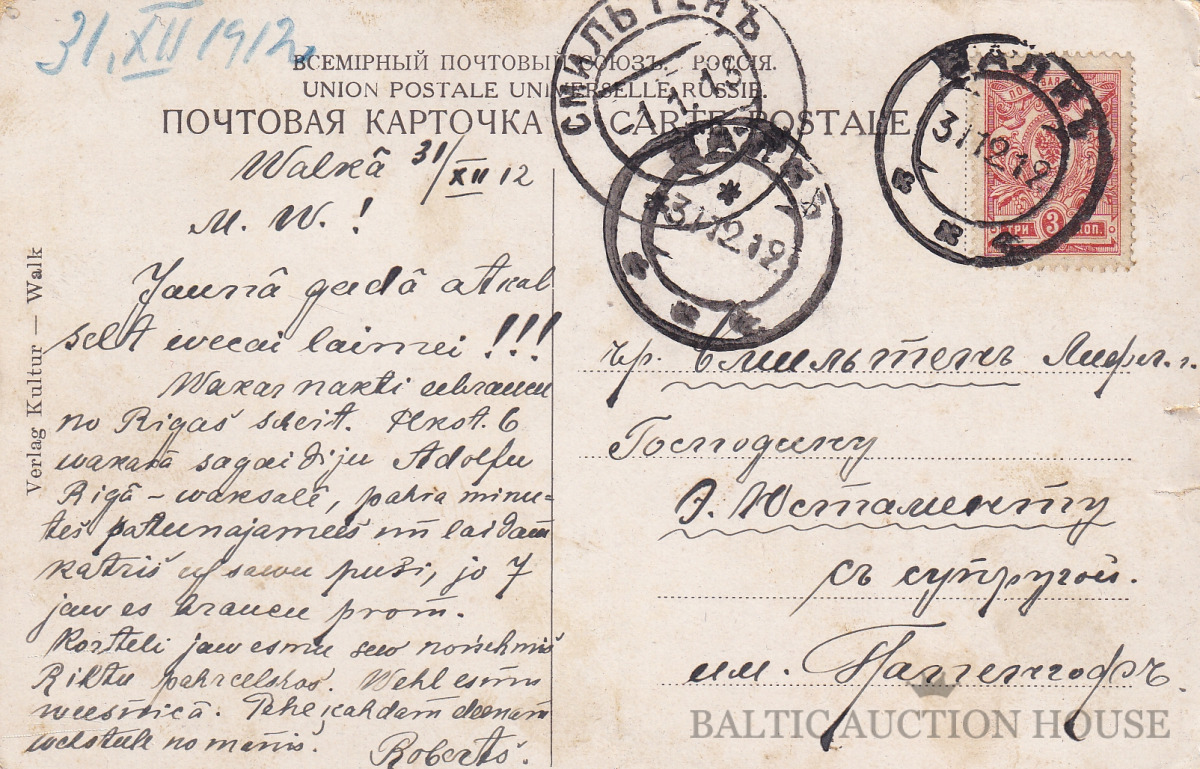 31.XII 1912
ВСЕМІРНЫЙ ПОЧТОВЫЙ СОЮЗЪ. РОССІЯ.
UNION POSTALE UNIVERSELLE RUSSIE.
ПОЧТОВАЯ КАРТОЧКА CARTE POSTALE
СМИЛЬТЕНЪ
1.1.13
ВАЛКЪ
31.12.12
ВАЛКЪ
31.12.12
ТРИ 3 КОП.
Verlag Kultur — Walk
Walkā 31/XII 12
M. W. !
Jaunā gadā atkal
selt wecai laimei !!!
Wakar nakti
no Rigas scheit. 6
wakarā sagaidiju Adolfu
Rigā – waksalē, pahra minu-
tes un laidām
katris us sawu pusi, jo 7
jau es braucu prom.
Korteli jau esmu
Riktu pahrcelshos. Wehl esmu
weesnicā. Pehz kahdam deenam
wehstule no manis.
Roberts.
гр. Смильтенъ Лифл. г.
Господину
Э. Юстаменту
съ супругой.
им. Папенгофъ.
BALTIC AUCTION HOUSE